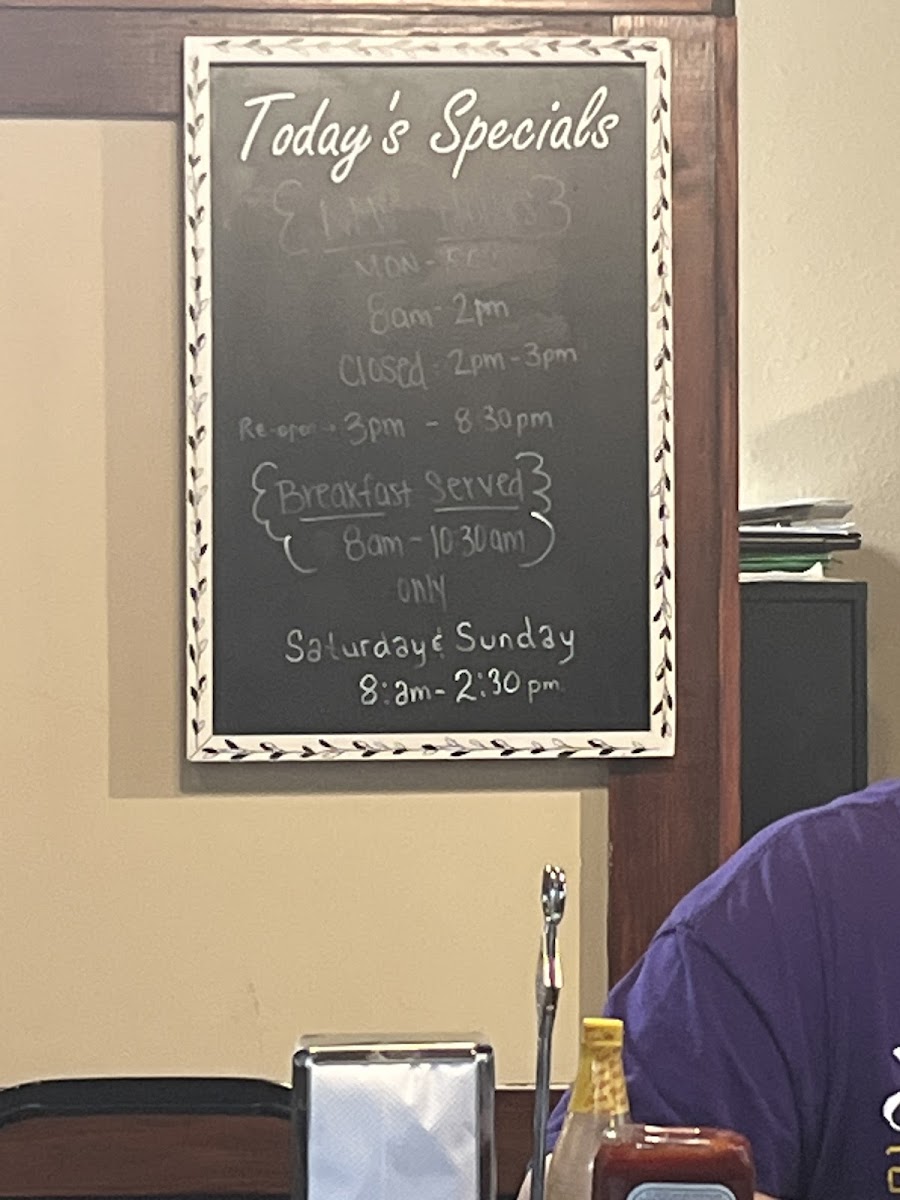 Today's Specials
{ Hours }
MON - FRI
8am - 2pm
Closed: 2pm - 3pm
Re-open → 3pm - 8:30pm
{Breakfast Served}
(8am - 10:30am)
only
Saturday & Sunday
8:am - 2:30 pm